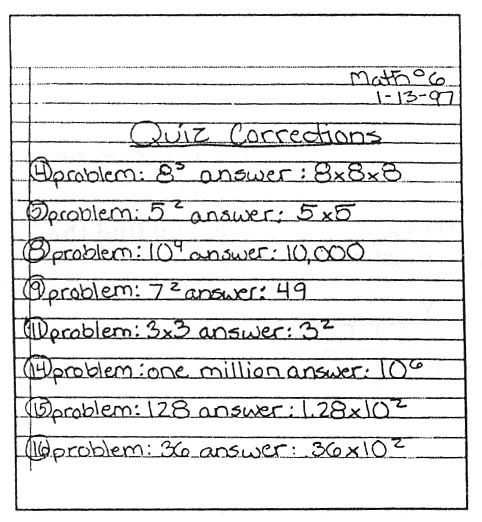 Math °6
1-13-97
Quiz Corrections
④ problem: 8³ answer: 8x8x8
⑤ problem: 5² answer: 5x5
⑧ problem: 10⁴ answer: 10,000
⑨ problem: 7² answer: 49
⑪ problem: 3x3 answer: 3²
⑭ problem: one million answer: 10⁶
⑮ problem: 128 answer: 1.28x10²
⑯ problem: 36 answer: .36x10²